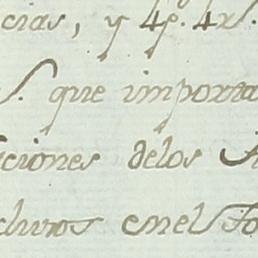 cias, y 4p.s 4r.s
s. que importa
ciones delos
chivos enel Fo